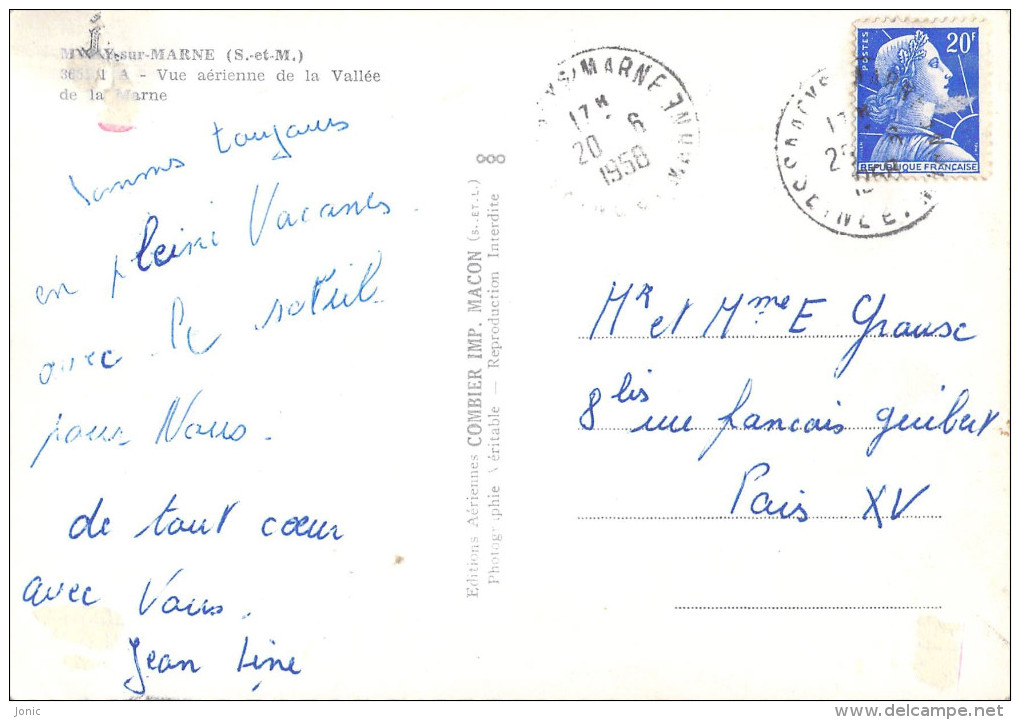 -sur-MARNE (S.-et-M.)
A - Vue aérienne de la Vallée
de la Marne
sommes toujours
en pleine Vacances
avec le soleil
pour Nous.
de tout cœur
avec Vous.
Jean Line
Editions Aériennes COMBIER IMP. MACON (S.-ET-L.)
Photographie Véritable — Reproduction Interdite
MARNE
17 H
20 - 6
1958
17 H
SEINE
POSTES
20F
REPUBLIQUE FRANÇAISE
Mr et Mme E Grause
8 bis rue francois guibert
Paris XV
Jonic
delcampe.net